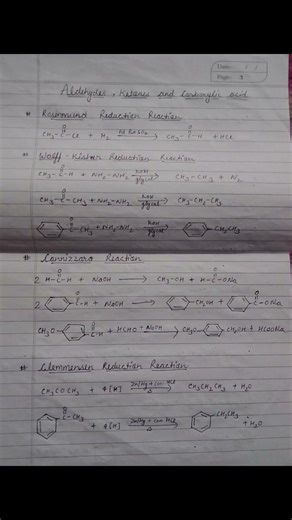 Date: / /
Page: 3
Aldehydes, Ketones and Carboxylic acid
# Rosenmund Reduction Reaction
CH₃-C(=O)-Cl + H₂ → CH₃-C(=O)-H + HCl
# Wolff-Kishner Reduction Reaction
CH₃-C(=O)-H + NH₂-NH₂ KOH/glycol → CH₃-CH₃ + N₂
CH₃-C(=O)-CH₃ + NH₂-NH₂ KOH/glycol → CH₃-CH₂-CH₃
C(=O)-CH₃ + NH₂-NH₂ KOH/glycol → CH₂CH₃
# Cannizzaro Reaction
2 H-C(=O)-H + NaOH → CH₃-OH + H-C(=O)-ONa
2 C(=O)-H + NaOH → CH₂OH + C(=O)-ONa
CH₃O C(=O)-H + HCHO + NaOH → CH₃O CH₂OH + HCOONa
# Clemmensen Reduction Reaction
CH₃COCH₃ + 4[H] Zn(Hg) + con. HCl/Δ → CH₃CH₂CH₃ + H₂O
C(=O)-CH₃ + 4[H] Zn(Hg) + con. HCl/Δ → CH₂CH₃ + H₂O